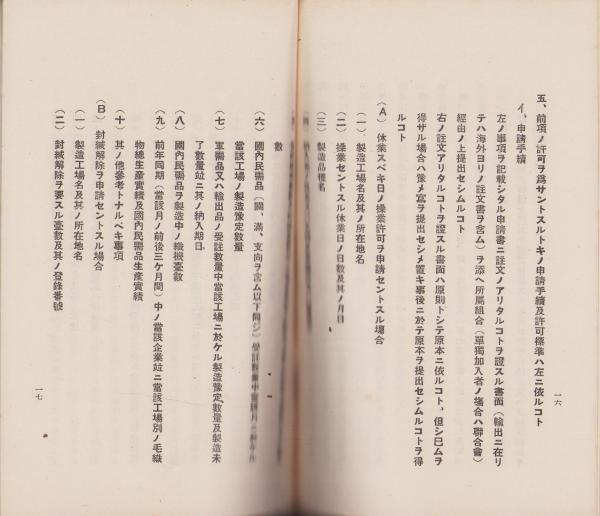 五、前項ノ許可ヲ爲サントスルトキノ申請手續及許可標準ハ左ニ依ルコト
イ、申請手續
左ノ事項ヲ記載シタル申請書ニ註文ノアリタルコトヲ證スル書面(輸出ニ在リ
テハ海外ヨリノ註文書ヲ含ム)ヲ添ヘ所屬組合(單獨加入者ノ場合ハ聯合會)
經由ノ上提出セシムルコト
右ノ註文アリタルコトヲ證スル書面ハ原則トシテ原本ニ依ルコト、但シ已ムヲ
得ザル場合ハ豫メ寫ヲ提出セシメ置キ事後ニ於テ原本ヲ提出セシムルコトヲ得
ルコト
(A) 休業スベキ日ノ操業許可ヲ申請セントスル場合
(一) 製造工場名及其ノ所在地名
(二) 操業セントスル休業日ノ日數及其ノ月日
(三) 製造品種名
一六
數
(六) 國內民需品(關、滿、支向ヲ含ム以下同ジ)受註數量中當該月ニ於ケル
當該工場ノ製造豫定數量
(七) 軍需品又ハ輸出品ノ受註數量中當該工場ニ於ケル製造豫定數量及製造未
了數量竝ニ其ノ納入期日
(八) 國內民需品ヲ製造中ノ織機臺數
(九) 前年同期(當該月ノ前後三ケ月間)中ノ當該企業竝ニ當該工場別ノ毛織
物總生產實績及國內民需品生產實績
(十) 其ノ他參考トナルベキ事項
(B) 封緘解除ヲ申請セントスル場合
(一) 製造工場名及其ノ所在地名
(二) 封緘解除ヲ要スル臺數及其ノ登錄番號
一七